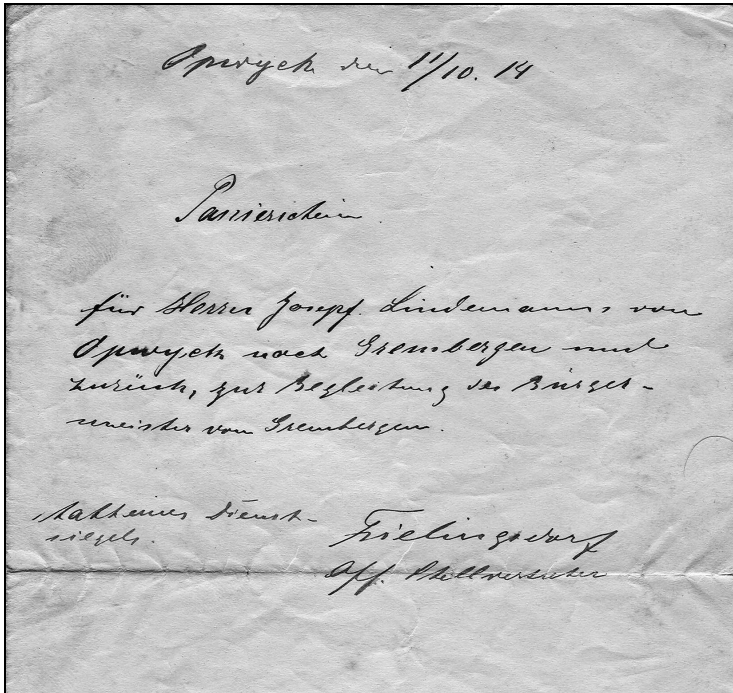 Opwyck den 11/10. 14
Passierschein
für Herrn Josepf. Lindemanns von
Opwyck nach Grembergen und
zurück, zur Begleitung des Bürger-
meister von Grembergen.
statt eines Dienst-
siegels.
Frielingsdorf
Off. Stellvertreter